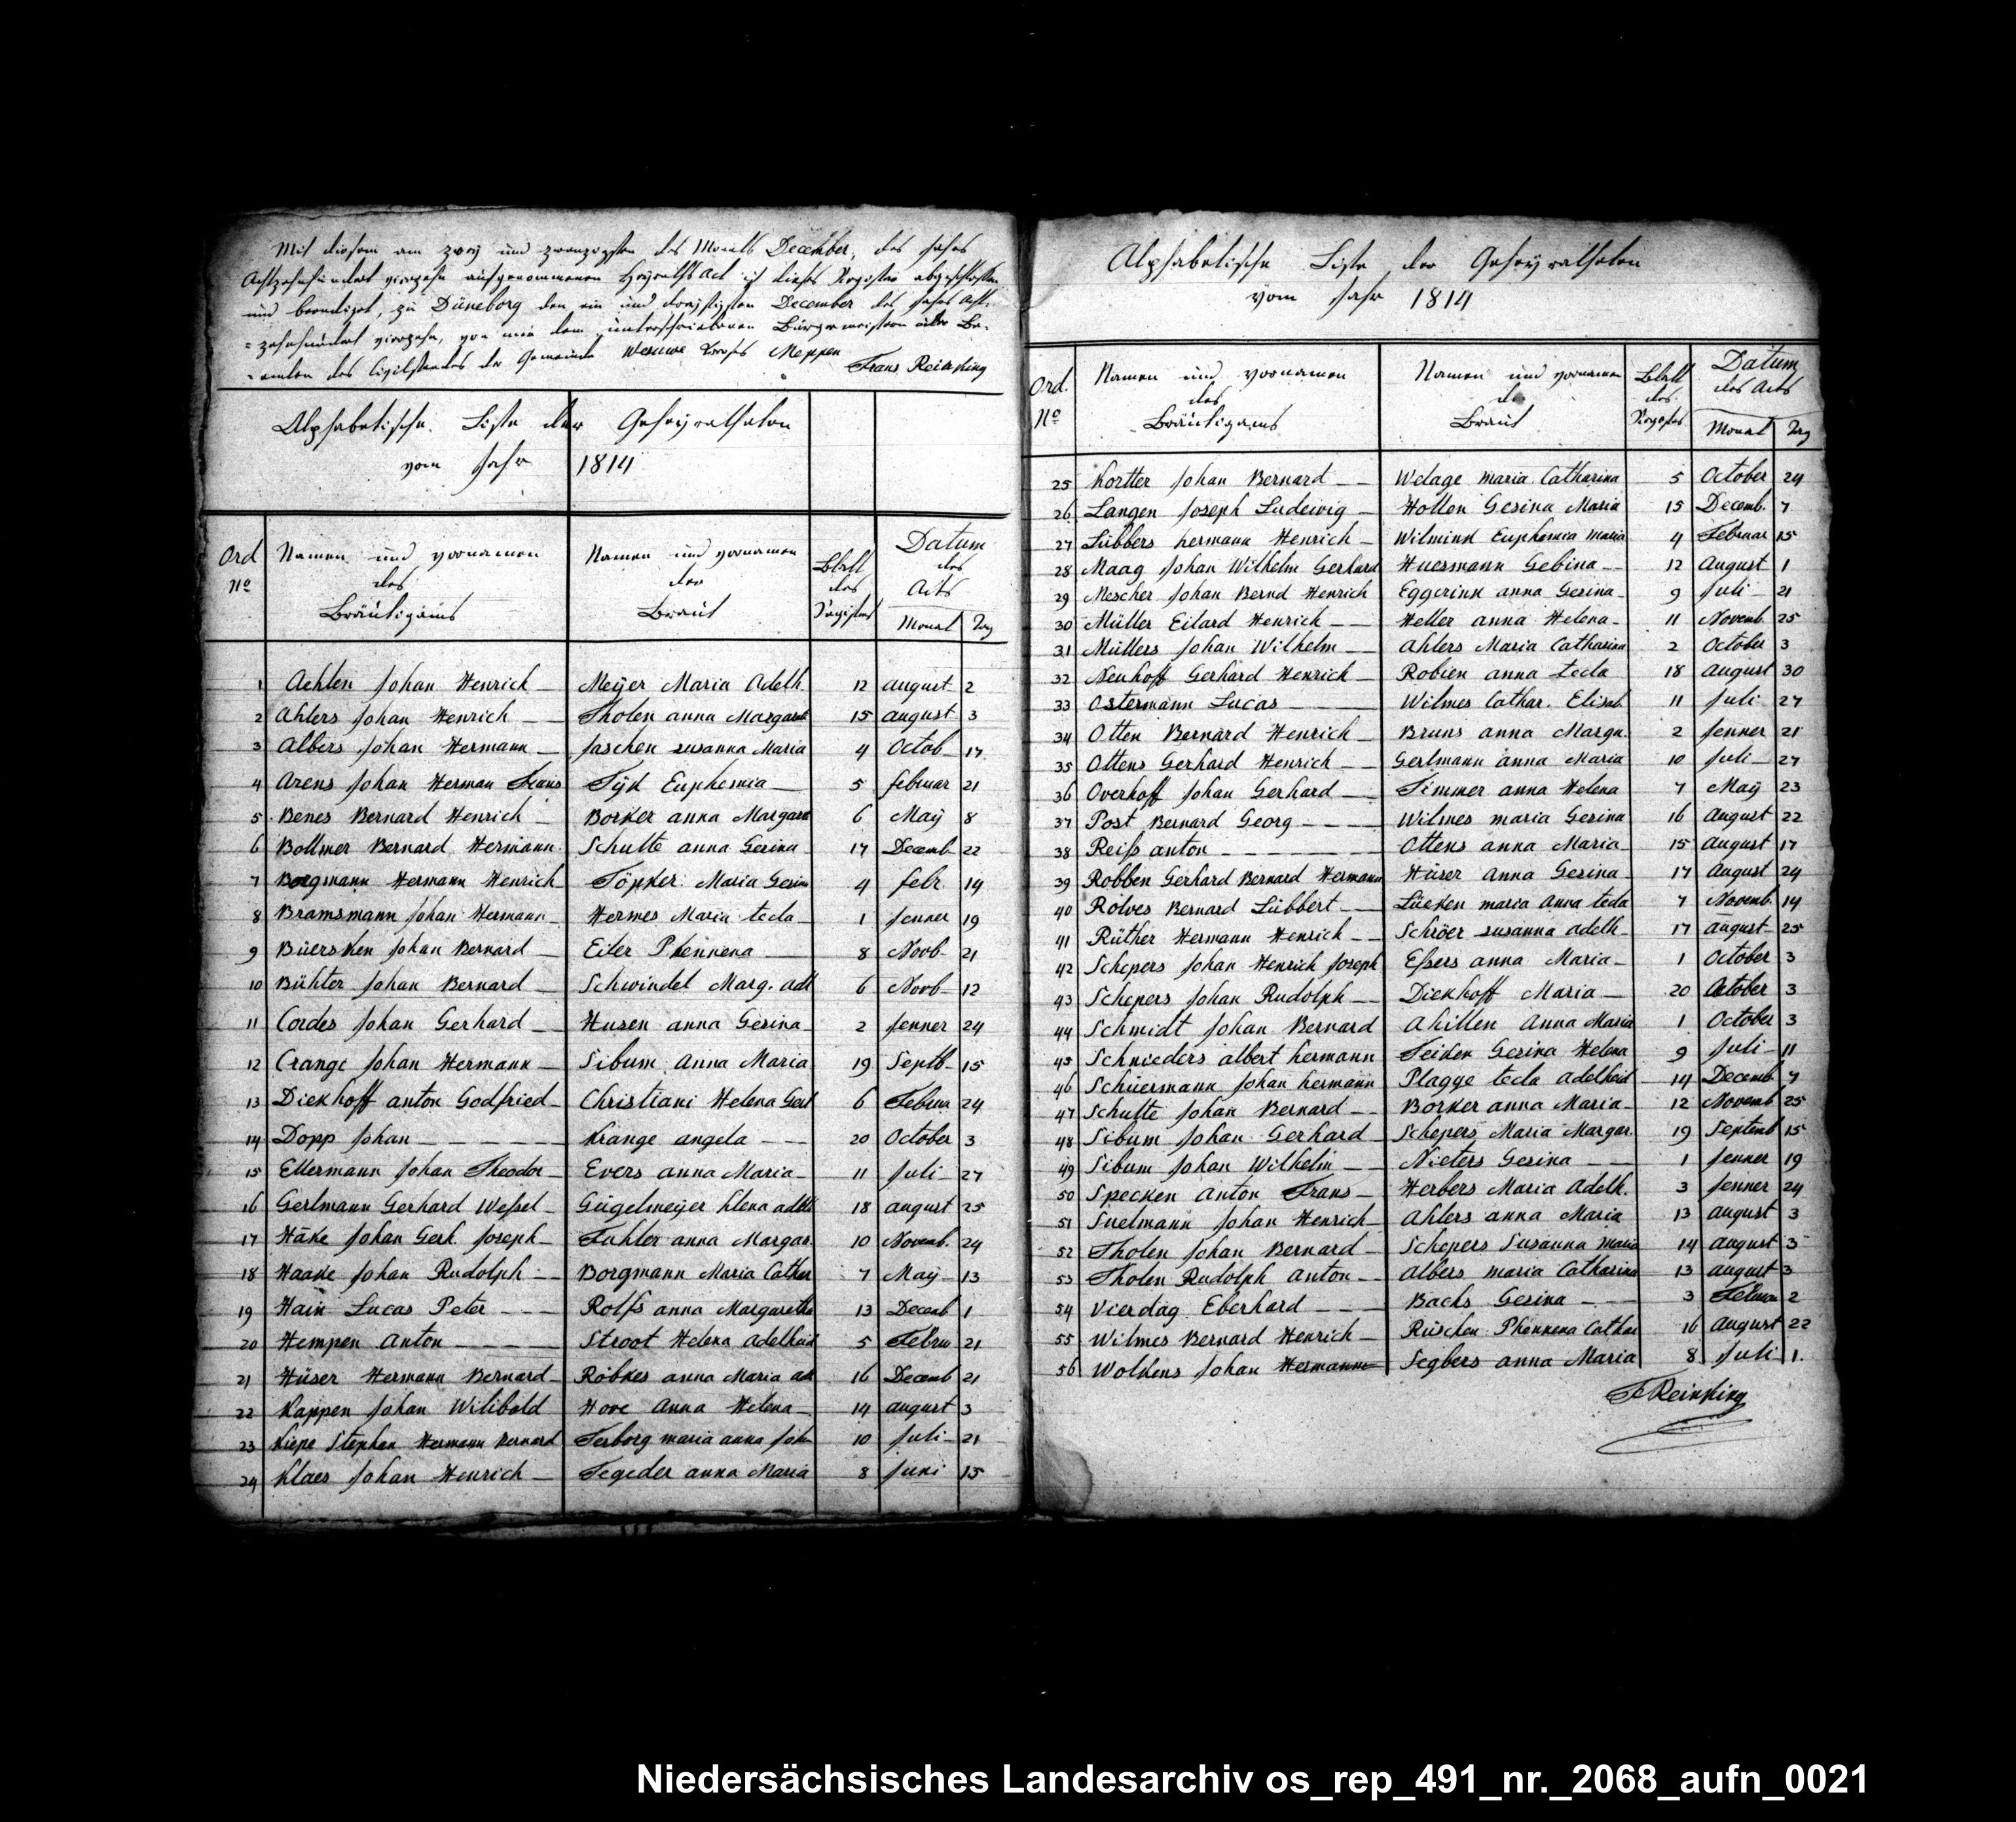 Mit diesem am zweÿ und zwanzigsten des Monats December, des Jahres
Achtzehnhundert vierzehn aufgenommenen Heÿraths Act ist dieses Register abgeschlossen
und beendiget, zu Düneborg den ein und dreÿssigsten December des Jahres Acht-
=zehnhundert vierzehn, von mir dem unterschriebenen Bürgermeistern als Be-
-amten des Civilstandes der Gemeinde Wesuwe Meppen
Frans Reinking
Alphabetische Liste der Geheÿratheten
vom Jahr 1814
Ord No
Namen und vornamen des Bräutigams
Namen und vornamen der Braut
Blatt des Registers
Datum des Acts
Monat Tag
1 Aehlen Johan Henrich Meÿer Maria Adelh. 12 august 2
2 Ahlers Johan Henrich Tholen anna Margareth 15 august 3
3 Albers Johan Hermann Jaschen susanna Maria 4 Octob 17
4 Arens Johan Herman Frans Tÿk Euphemia 5 februar 21
5 Benes Bernard Henrich Borker anna Margaret 6 Maÿ 8
6 Bollmer Bernard Hermann Schulte anna Gesina 17 Decemb 22
7 Borgmann Hermann Henrich Töpker Maria Gesina 4 febr. 14
8 Bramsmann Johan Hermann Hermes Maria tecla 1 Jenner 19
9 Büersken Johan Bernard Eiler Phennena 8 Novb 21
10 Bühter Johan Bernard Schwindel Marg. adl 6 Novb 12
11 Cordes Johan Gerhard Husen anna Gesina 2 Jenner 24
12 Crange Johan Hermann Sibum Anna Maria 19 Septb 15
13 Diekhoff anton Godfried Christiani Helena Gert 6 Februa 24
14 Dopp Johan Krange angela 20 October 3
15 Ellermann Johan Theodor Evers anna Maria 11 Juli 27
16 Gerlmann Gerhard Wessel Geigelmeÿer Elena adelh 18 august 25
17 Häke Johan Gerh. Joseph Fuhler anna Margar. 10 Novemb. 24
18 Haake Johan Rudolph Borgmann Maria Cathar 7 Maÿ 13
19 Hain Lucas Peter Rolfs anna Margaretha 13 Decemb 1
20 Hempen Anton Stroot Helena Adelheid 5 Febru 21
21 Hüser Hermann Bernard Röbkes anna Maria ad 16 Decemb 21
22 Kappen Johan Wilibald Hove Anna Helena 14 august 3
23 Kiepe Stephan Hermann Bernard Terborg maria anna Joha 10 Juli 21
24 Klaes Johan Henrich Tegeder anna Maria 8 Juni 15
Alphabetische Liste der Geheÿratheten
vom Jahr 1814
Ord. No
Namen und vornamen des Bräutigams
Namen und vornamen der Braut
Blatt des Registers
Datum des Acts
Monat Tag
25 Kortter Johan Bernard Welage maria Catharina 5 October 24
26 Langen Joseph Ludewig Hollen Gesina Maria 15 Decemb. 7
27 Lübbers hermann Henrich Wilmink Euphemia maria 4 Februar 15
28 Maag Johan Wilhelm Gerhard Huermann Gebina 12 August 1
29 Mescher Johan Bernd Henrich Eggerink anna Gesina 9 Juli 21
30 Müller Eilard Henrich Heller anna Helena 11 Novemb. 25
31 Müllers Johan Wilhelm Ahlers Maria Catharina 2 October 3
32 Neuhoff Gerhard Henrich Robien anna tecla 18 august 30
33 Ostermann Lucas Wilmes Cathar. Elisab. 11 Juli 27
34 Otten Bernard Henrich Bruns anna Marga. 2 Jenner 21
35 Ottens Gerhard Henrich Gerlmann anna Maria 10 Juli 27
36 Overhoff Johan Gerhard Timmer anna Helena 7 Maÿ 23
37 Post Bernard Georg Wilmes maria Gesina 16 August 22
38 Reiß anton Ottens anna Maria 15 August 17
39 Robben Gerhard Bernard Hermann Hüser Anna Gesina 17 August 24
40 Rolves Bernard Lübbert Lüeken maria Anna tecla 7 Novemb. 14
41 Rüther Hermann Henrich Schröer susanna adelh 17 august 25
42 Schepers Johan Henrich Joseph Eßers anna Maria 1 October 3
43 Schepers Johan Rudolph Diekhoff Maria 20 October 3
44 Schmidt Johan Bernard Ahillen Anna Maria 1 October 3
45 Schnieders albert hermann Feiken Gesina Helena 9 Juli 11
46 Schüermann Johan hermann Plagge tecla adelheid 14 Decemb 7
47 Schulte Johan Bernard Borker anna Maria 12 Novemb 25
48 Sibum Johan Gerhard Schepers Maria Margar. 19 Septemb 15
49 Sibum Johan Wilhelm Nieters Gesina 1 Jenner 19
50 Specken Anton Frans Herbers Maria Adelh. 3 Jenner 24
51 Suelmann Johan Henrich Ahlers anna Maria 13 august 3
52 Tholen Johan Bernard Schepers Susanna Maria 14 august 3
53 Tholen Rudolph Anton Albers maria Catharina 13 august 3
54 Vierdag Eberhard Bachs Gesina 3 Februa 2
55 Wilmes Bernard Henrich Rüschen Phennena Cathar 16 August 22
56 Wolkens Johan Hermann Segbers anna Maria 8 Juli 1.
F Reinking
Niedersächsisches Landesarchiv os_rep_491_nr._2068_aufn_0021